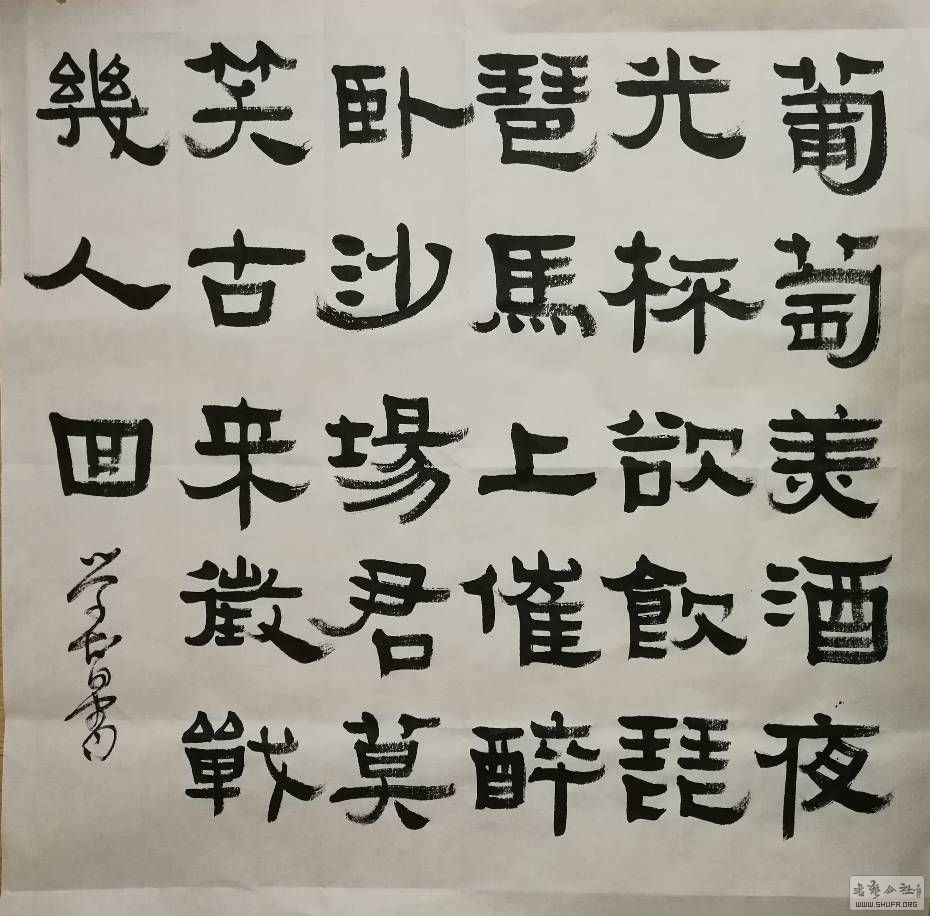 葡萄美酒夜
光杯欲飲琵
琶馬上催醉
卧沙場君莫
笑古来徵戰
幾人回
书艺公社
WWW.SHUFA.ORG